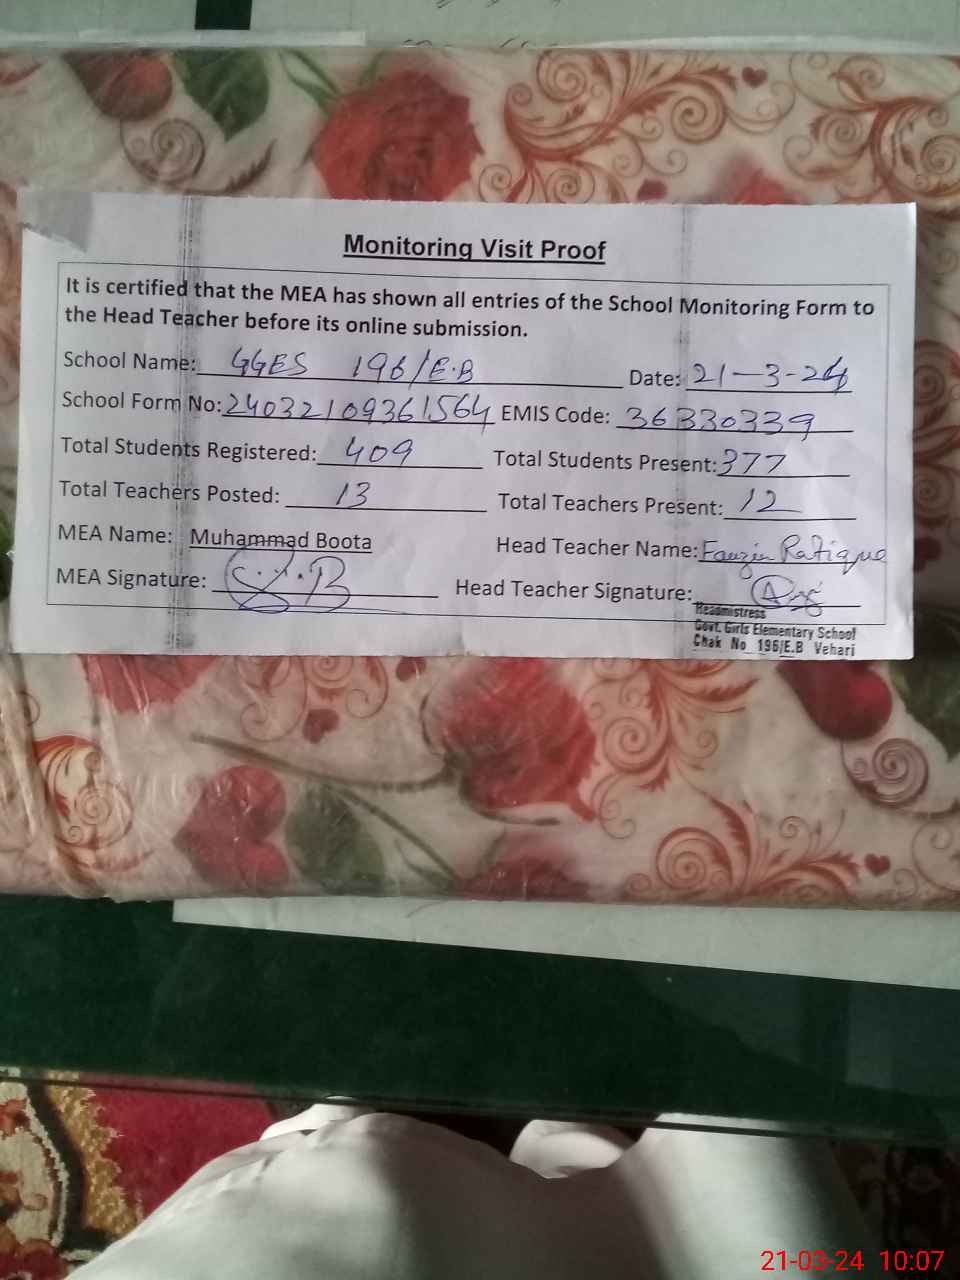 Monitoring Visit Proof
It is certified that the MEA has shown all entries of the School Monitoring Form to
the Head Teacher before its online submission.
School Name: GGES 196/E.B Date: 21-3-24
School Form No: 24032109361564 EMIS Code: 36330339
Total Students Registered: 409 Total Students Present: 377
Total Teachers Posted: 13 Total Teachers Present: 12
MEA Name: Muhammad Boota Head Teacher Name: Fauzia Rafique
MEA Signature: Head Teacher Signature:
Headmistress
Govt. Girls Elementary School
Chak No 196/E.B Vehari
21-03-24 10:07